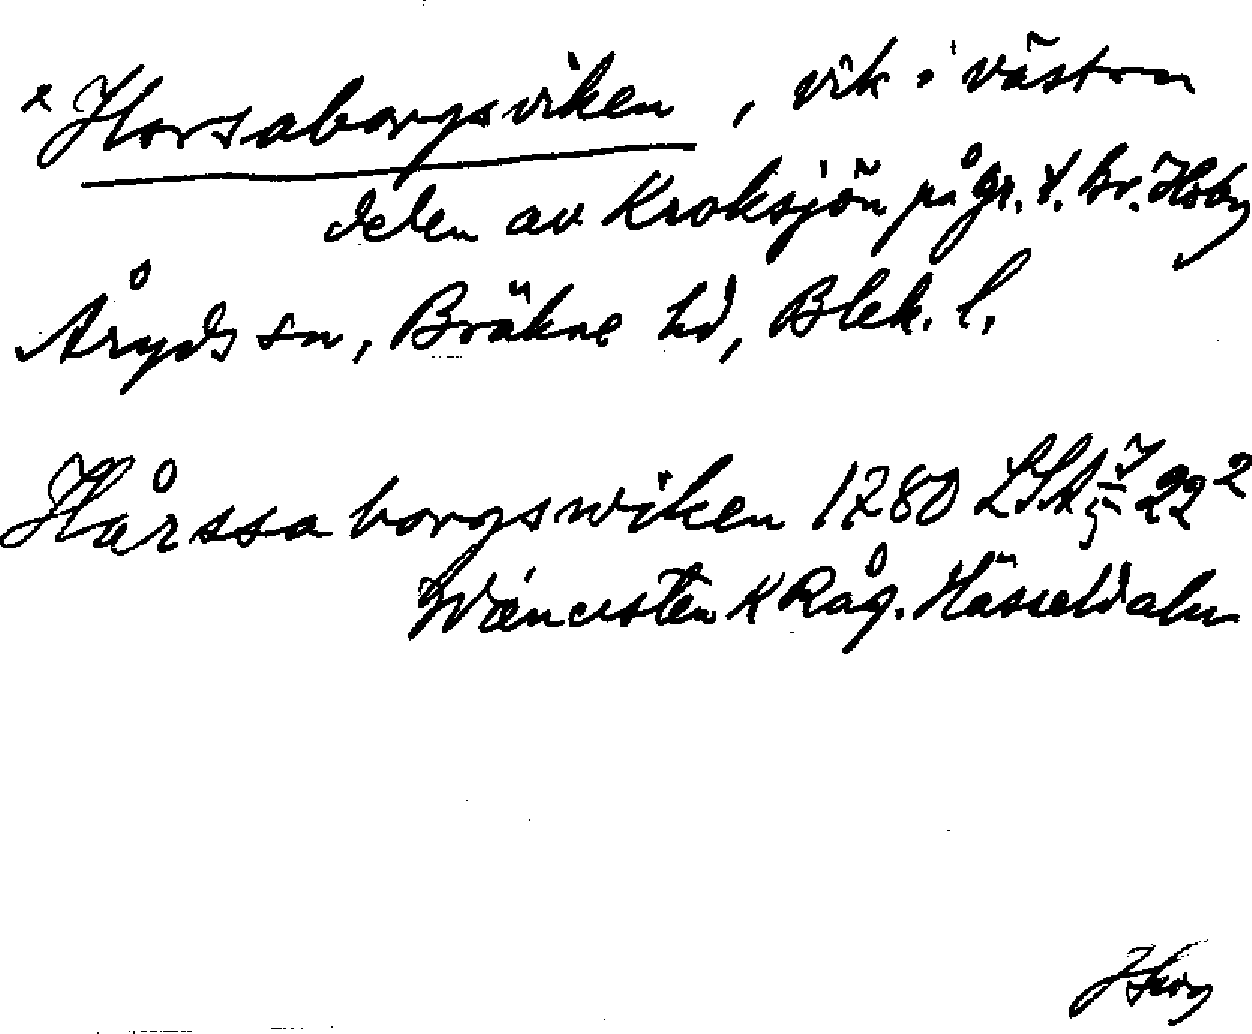 x Horsaborgsviken, vik i västra
delen av Kroksjön på gr. t. Br. Hoby
Åryds sn, Bräkne hd, Blek. l.
Hårssaborgswiken 1780 LSA 22²
K Råg. Hässeldalen